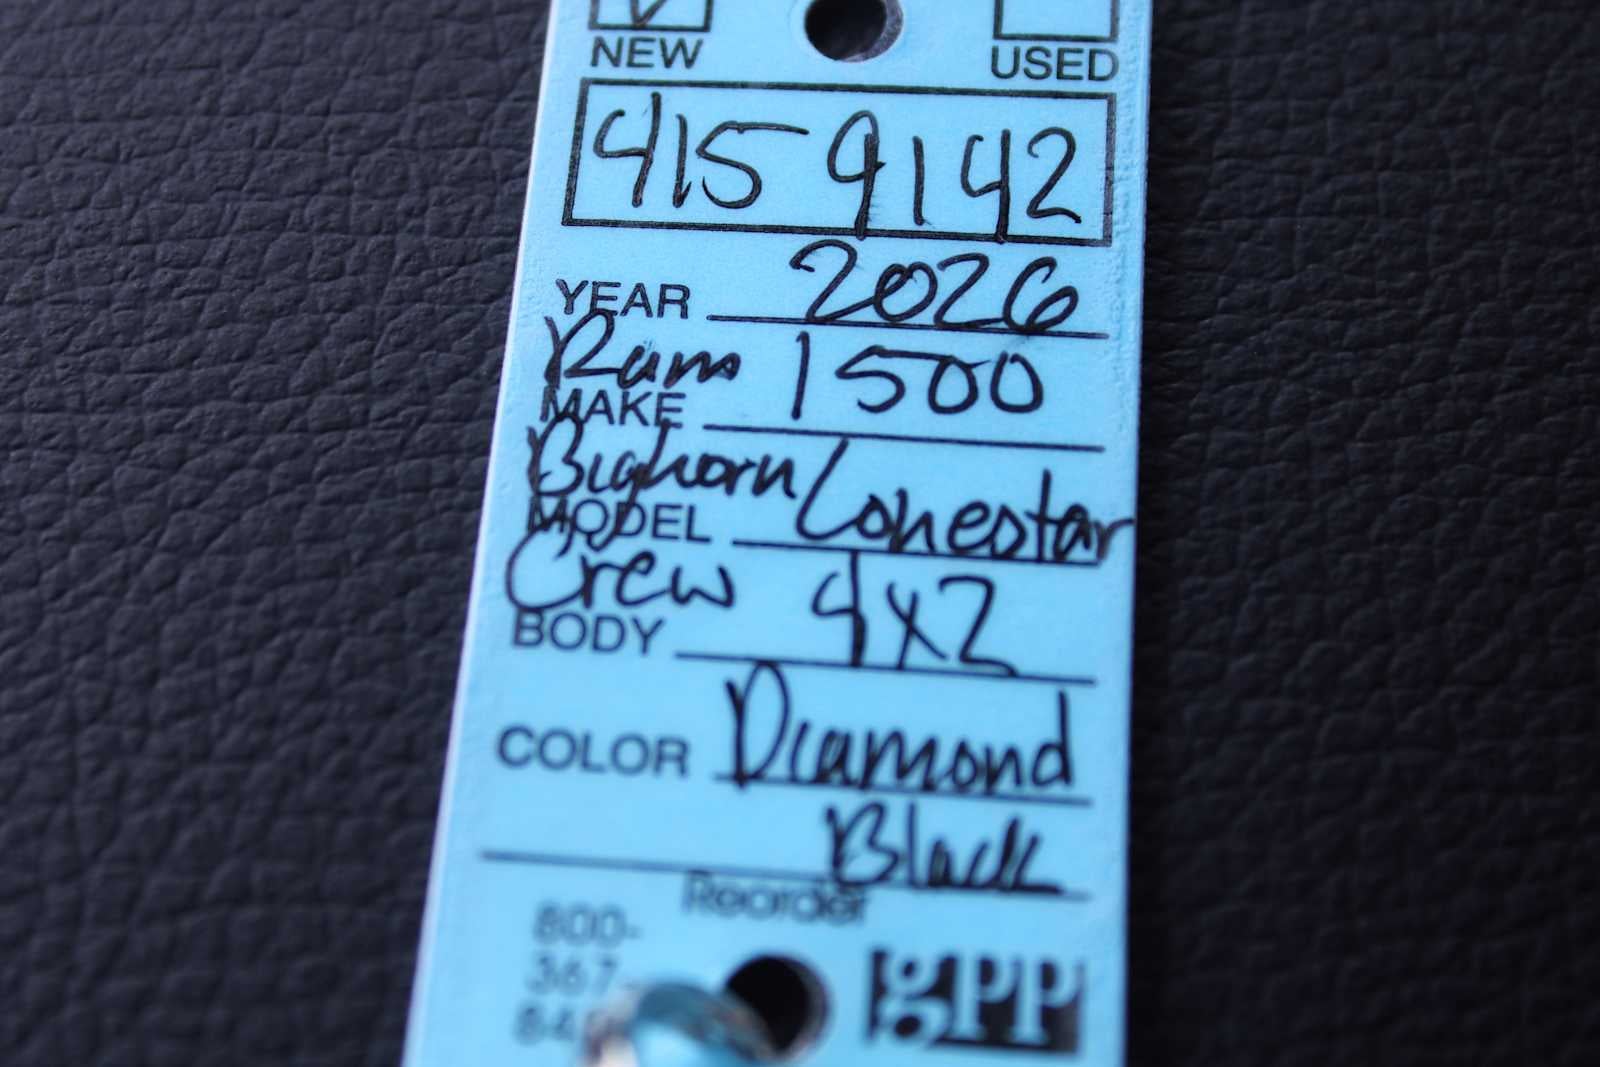 NEW USED
415 9142
YEAR 2026
Ram 1500
MAKE
Bighorn/Lonestar
MODEL
Crew 4x2
BODY
COLOR Diamond
Black
Reorder
800-
367-
gPP